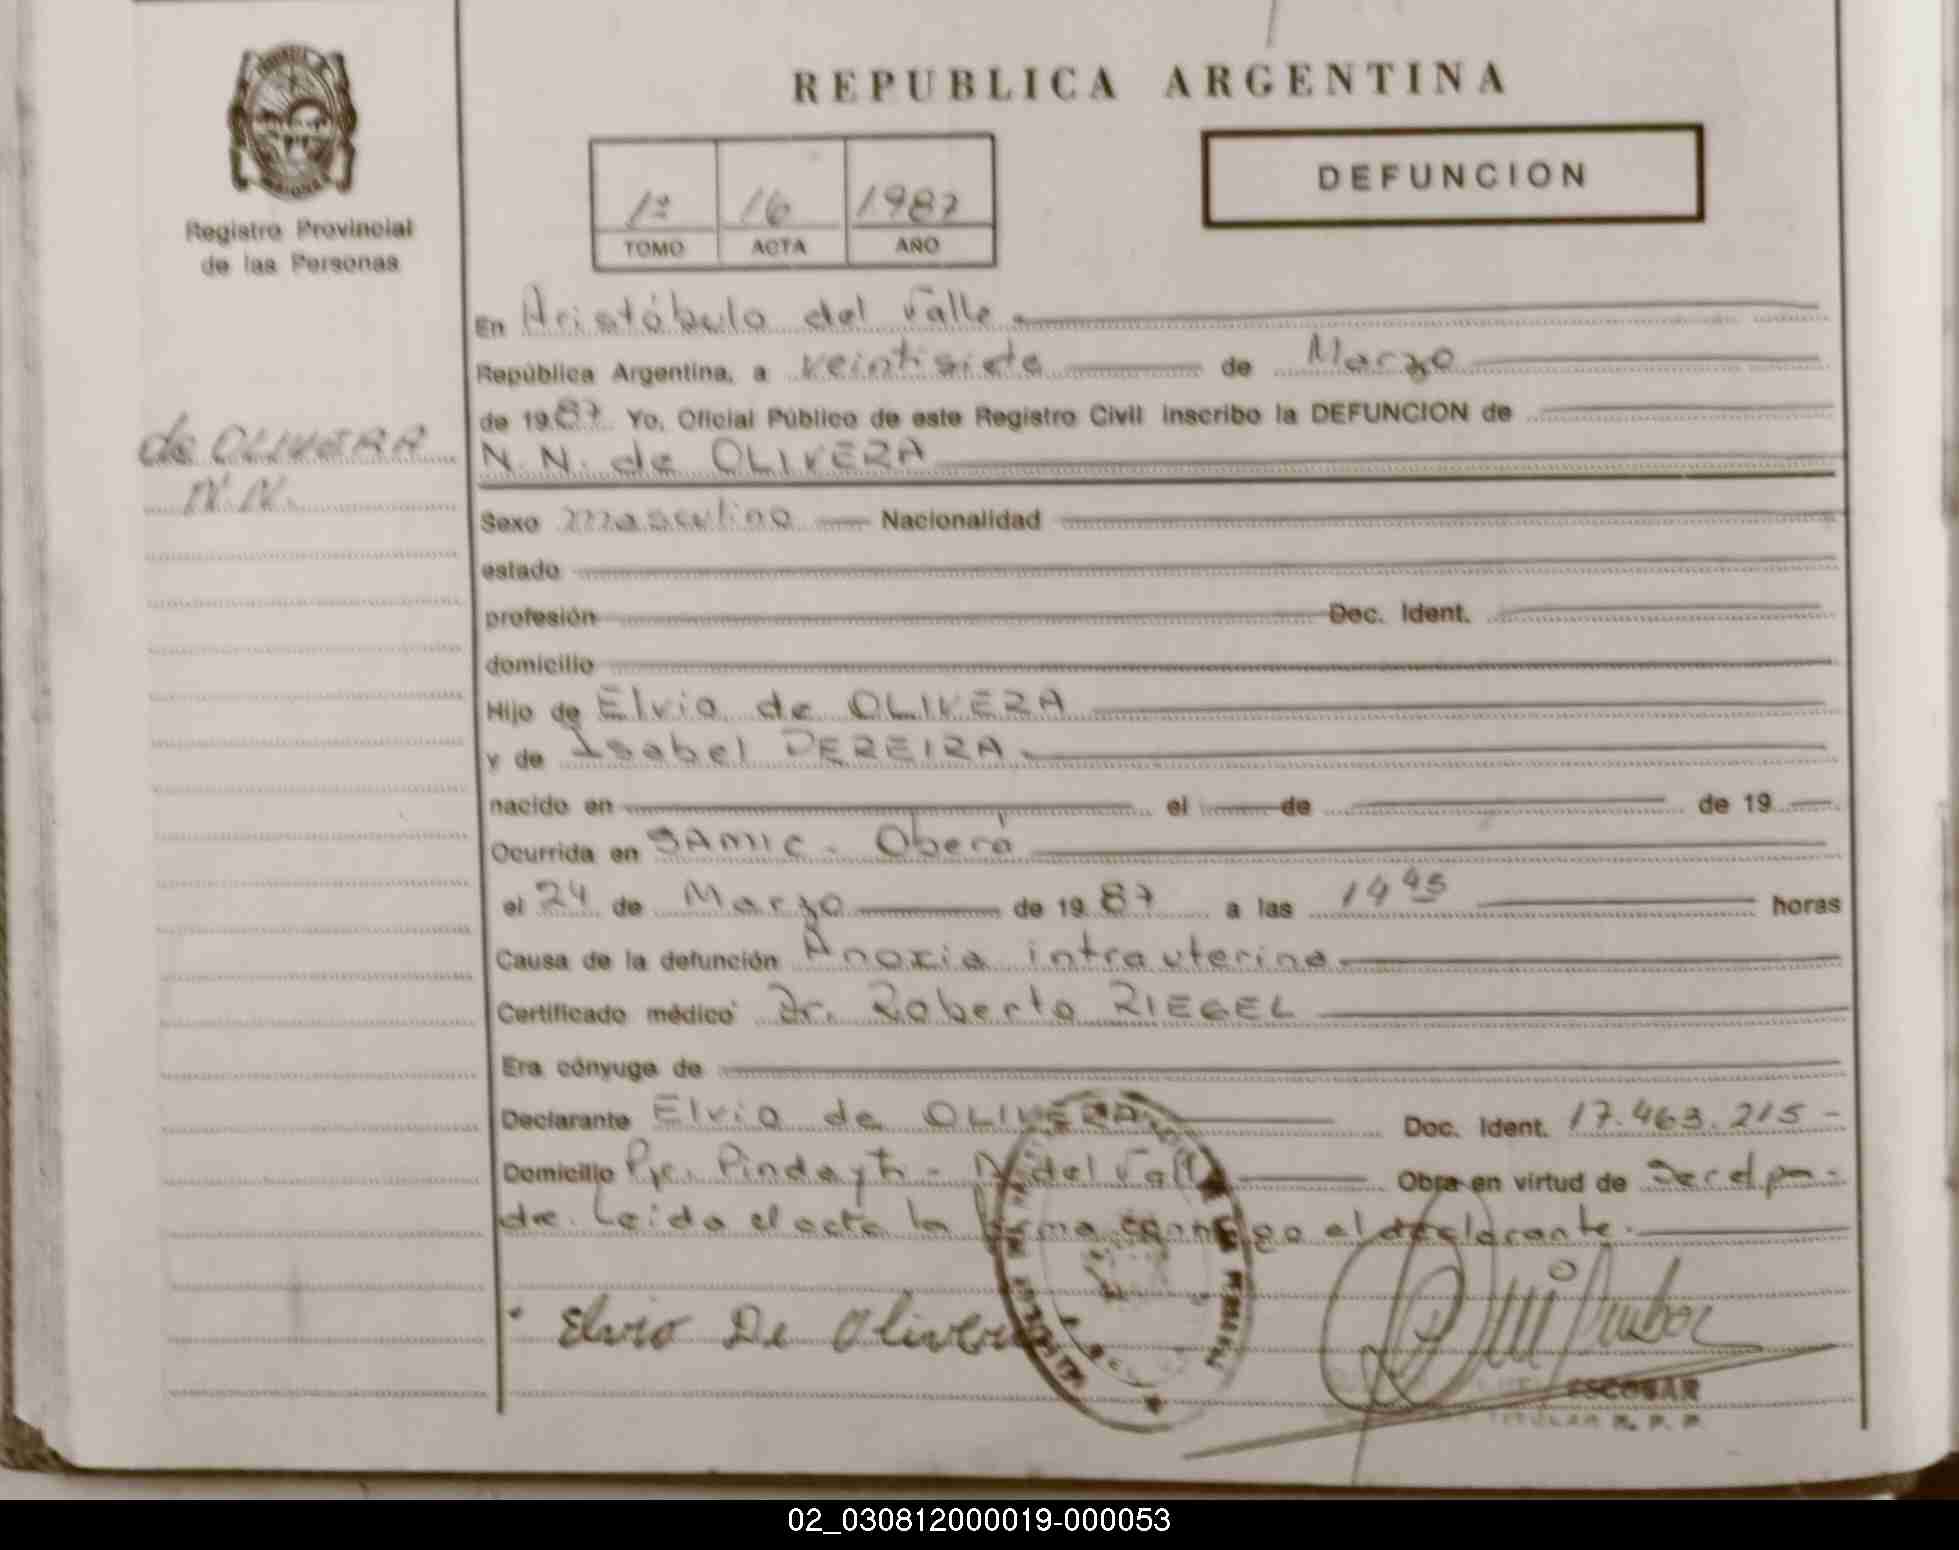 REPUBLICA ARGENTINA
Registro Provincial
de las Personas
1º 16 1987
TOMO ACTA AÑO
DEFUNCION
de OLIVERA
N.N.
En Aristóbulo del Valle
República Argentina, a veintisiete de Marzo
de 1987 Yo, Oficial Público de este Registro Civil inscribo la DEFUNCION de
N.N. de OLIVERA
Sexo masculino Nacionalidad
estado
profesión Doc. Ident.
domicilio
Hijo de Elvio de OLIVERA
y de Isabel PEREIRA
nacido en el de de 19
Ocurrida en SAMIC - Oberá
el 24 de Marzo de 1987 a las 14 45 horas
Causa de la defunción Anoxia intrauterina
Certificado médico Dr. Roberto RIEGEL
Era cónyuge de
Declarante Elvio de OLIVERA Doc. Ident. 17.463.215-
Domicilio Pje. Pindayti - A. del Valle Obra en virtud de
Leida el acta la firma conmigo el declarante.
Elvio De Olivera
ESCOBAR
TITULAR R. P. P.
02_030812000019-000053